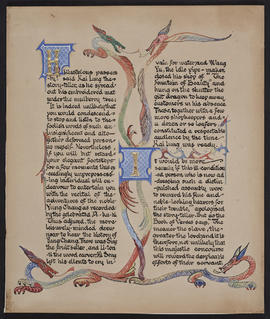 Illustrious persons
said Kai Lung the
story-teller, as he spread
out his embroidered mat
under the mulberry tree:
"It is indeed unlikely that
you would condescend
to stop and listen to the
foolish words of such an
insignificant and alto-
gether deformed person
as myself. Nevertheless
if you will but retard
your elegant footsteps
for a few moments this ex-
ceedingly unprepossess-
ing individual will en-
deavour to entertain you
with the recital of the
adventures of the noble
Yung Chang as recorded
by the celebrated
Thus adjured, the more
leisurely-minded drew
near to hear the history of
Yung Chang. There was Sing
the fruit seller, and Li-ton-
ti the wood carver; Hi Seng
left his clients to cry in
vain for water, and Wang
Yu, the idle pipe-maker,
closed his shop of "The
Fountain of Beauty" and
hung on the shutter the
gilt dragon to keep away
customers in his absence
These, together with a few
more shopkeepers and
a dozen or so loafers
constituted a respectable
audience by the time
Kai Lung was ready.
It would be more
seemly if this ill-condition-
ed person who is now ad-
dressing such a distin-
guished assembly were
to reward his fine and
noble-looking hearers for
their trouble," apologised
the story-teller "but as the
Book of Verses says, 'The
meaner the slave, the
greater the lord; and it is
therefore not unlikely that
this majestic concourse
will reward the despicable
efforts of their servant